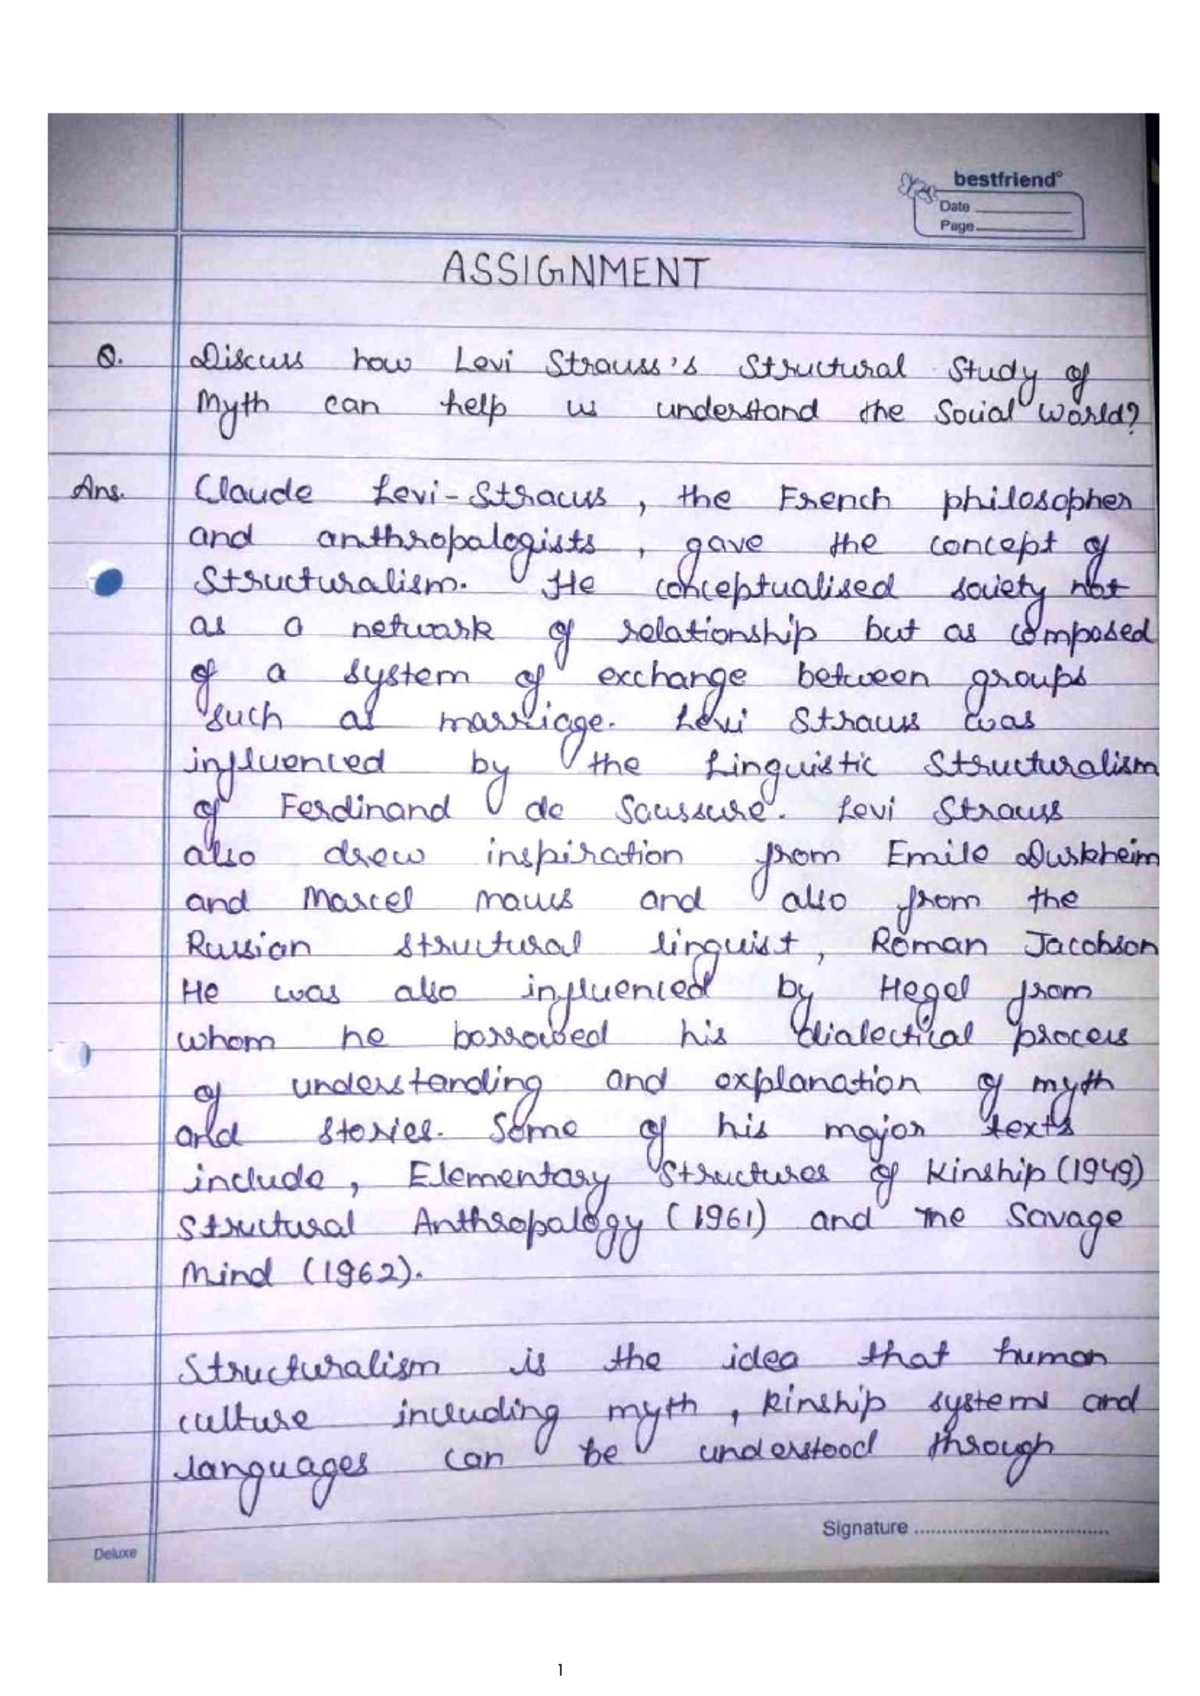 bestfriend
Date
Page
ASSIGNMENT
Q. Discuss how Levi Strauss's Structural Study of
Myth can help us understand the Social World?
Ans. Claude Levi-Stracus, the French philosopher
and anthropalogists, gave the concept of
Structuralism. He conceptualised society not
as a network of relationship but as composed
of a system of exchange between groups
such as marriage. Levi Straus was
influenced by the Linguistic Structuralism
of Ferdinand de Saussure. Levi Strauss
also drew inspiration from Emile Durkheim
and Marcel mauss and also from the
Russian structural linguist, Roman Jacobson
He was also influenced by Hegel from
whom he borrowed his dialectical process
of understanding and explanation of myth
and stories. Some of his major texts
include, Elementary Structures of Kinship (1949)
Structural Anthropalogy (1961) and The Savage
Mind (1962).
Structuralism is the idea that human
culture including myth, kinship systems and
languages can be understood through
Signature
Deluxe
1